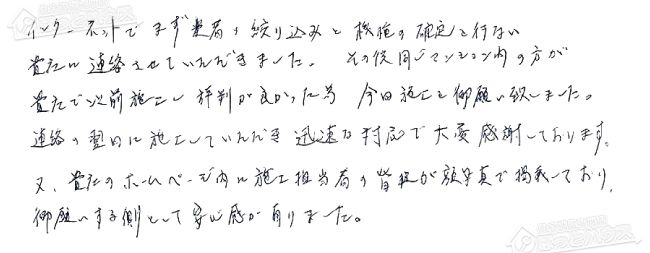 インターネットでまず業者の絞り込みと機種の確定を行ない
貴社に連絡させていただきました。その後同じマンション内の方が
貴社で以前施工し評判が良かった為 今回施工を御願い致しました。
連絡の翌日に施工していただき迅速な対応で大変感謝しております。
又、貴社のホームページ内に施工担当者の皆様が顔写真で掲載しており、
御願いする側として安心感が有りました。